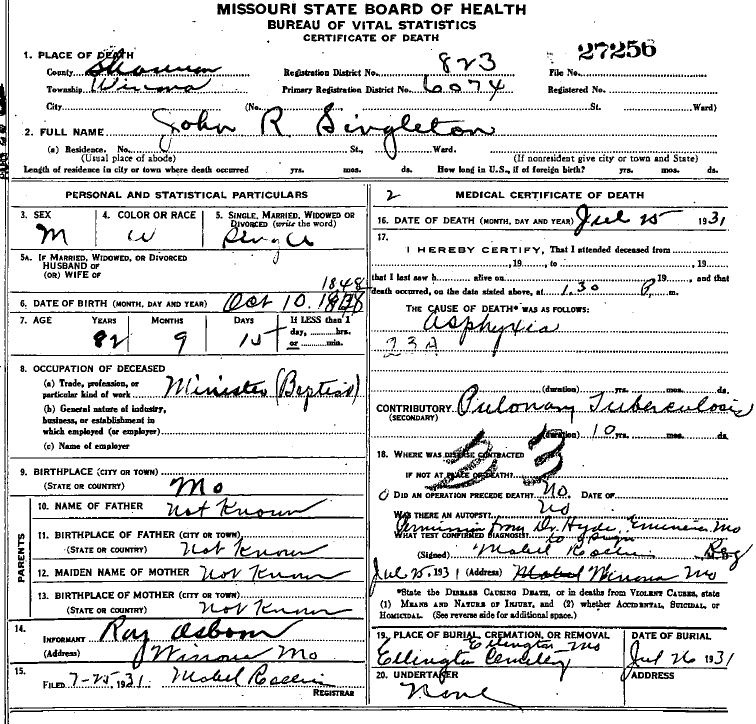 MISSOURI STATE BOARD OF HEALTH
BUREAU OF VITAL STATISTICS
CERTIFICATE OF DEATH
27256
1. PLACE OF DEATH
County Shannon Registration District No. 823 File No.
Township Winona Primary Registration District No. 6074 Registered No.
City (No. St. Ward)
2. FULL NAME John R Singleton
(a) Residence. No. St., Ward.
(Usual place of abode) (If nonresident give city or town and State)
Length of residence in city or town where death occurred yrs. mos. ds. How long in U.S., if of foreign birth? yrs. mos. ds.
PERSONAL AND STATISTICAL PARTICULARS
3. SEX 4. COLOR OR RACE 5. SINGLE, MARRIED, WIDOWED OR
DIVORCED (write the word)
M W Single
5A. IF MARRIED, WIDOWED, OR DIVORCED
HUSBAND OF
(OR) WIFE OF
1848
6. DATE OF BIRTH (MONTH, DAY AND YEAR) Oct 10
7. AGE YEARS MONTHS DAYS If LESS than 1
day, hrs.
or min.
82 9 15
8. OCCUPATION OF DECEASED
(a) Trade, profession, or
particular kind of work Minister (Baptist)
(b) General nature of industry,
business, or establishment in
which employed (or employer)
(c) Name of employer
9. BIRTHPLACE (CITY OR TOWN)
(STATE OR COUNTRY) Mo
PARENTS
10. NAME OF FATHER Not Known
11. BIRTHPLACE OF FATHER (CITY OR TOWN)
(STATE OR COUNTRY) Not Known
12. MAIDEN NAME OF MOTHER Not Known
13. BIRTHPLACE OF MOTHER (CITY OR TOWN)
(STATE OR COUNTRY) Not Known
14.
INFORMANT Ray Osborn
(Address) Winona Mo
15.
FILED 7-25, 1931 Mabel
REGISTRAR
2 MEDICAL CERTIFICATE OF DEATH
16. DATE OF DEATH (MONTH, DAY AND YEAR) Jul 25 1931
17.
I HEREBY CERTIFY, That I attended deceased from
, 19 , to , 19
that I last saw h alive on , 19 , and that
death occurred, on the date stated above, at 1.30 P. m.
THE CAUSE OF DEATH* WAS AS FOLLOWS:
Asphyxia
23A
(duration) yrs. mos. ds.
CONTRIBUTORY Pulonary Tuberculosis
(SECONDARY)
(duration) 10 yrs. mos. ds.
18. WHERE WAS DISEASE CONTRACTED
IF NOT AT PLACE OF DEATH?
DID AN OPERATION PRECEDE DEATH? No. DATE OF
WAS THERE AN AUTOPSY? No
Permission from Dr. Hyde, Eminence Mo
WHAT TEST CONFIRMED DIAGNOSIS? to sign
(Signed) Mabel Reg M.D.
Jul 25, 1931 (Address) Mabel Winona Mo
*State the DISEASE CAUSING DEATH, or in deaths from VIOLENT CAUSES, state
(1) MEANS AND NATURE OF INJURY, and (2) whether ACCIDENTAL, SUICIDAL, or
HOMICIDAL. (See reverse side for additional space.)
19. PLACE OF BURIAL, CREMATION, OR REMOVAL DATE OF BURIAL
Ellington Mo
Ellington Cemetery Jul 26 1931
20. UNDERTAKER ADDRESS
None